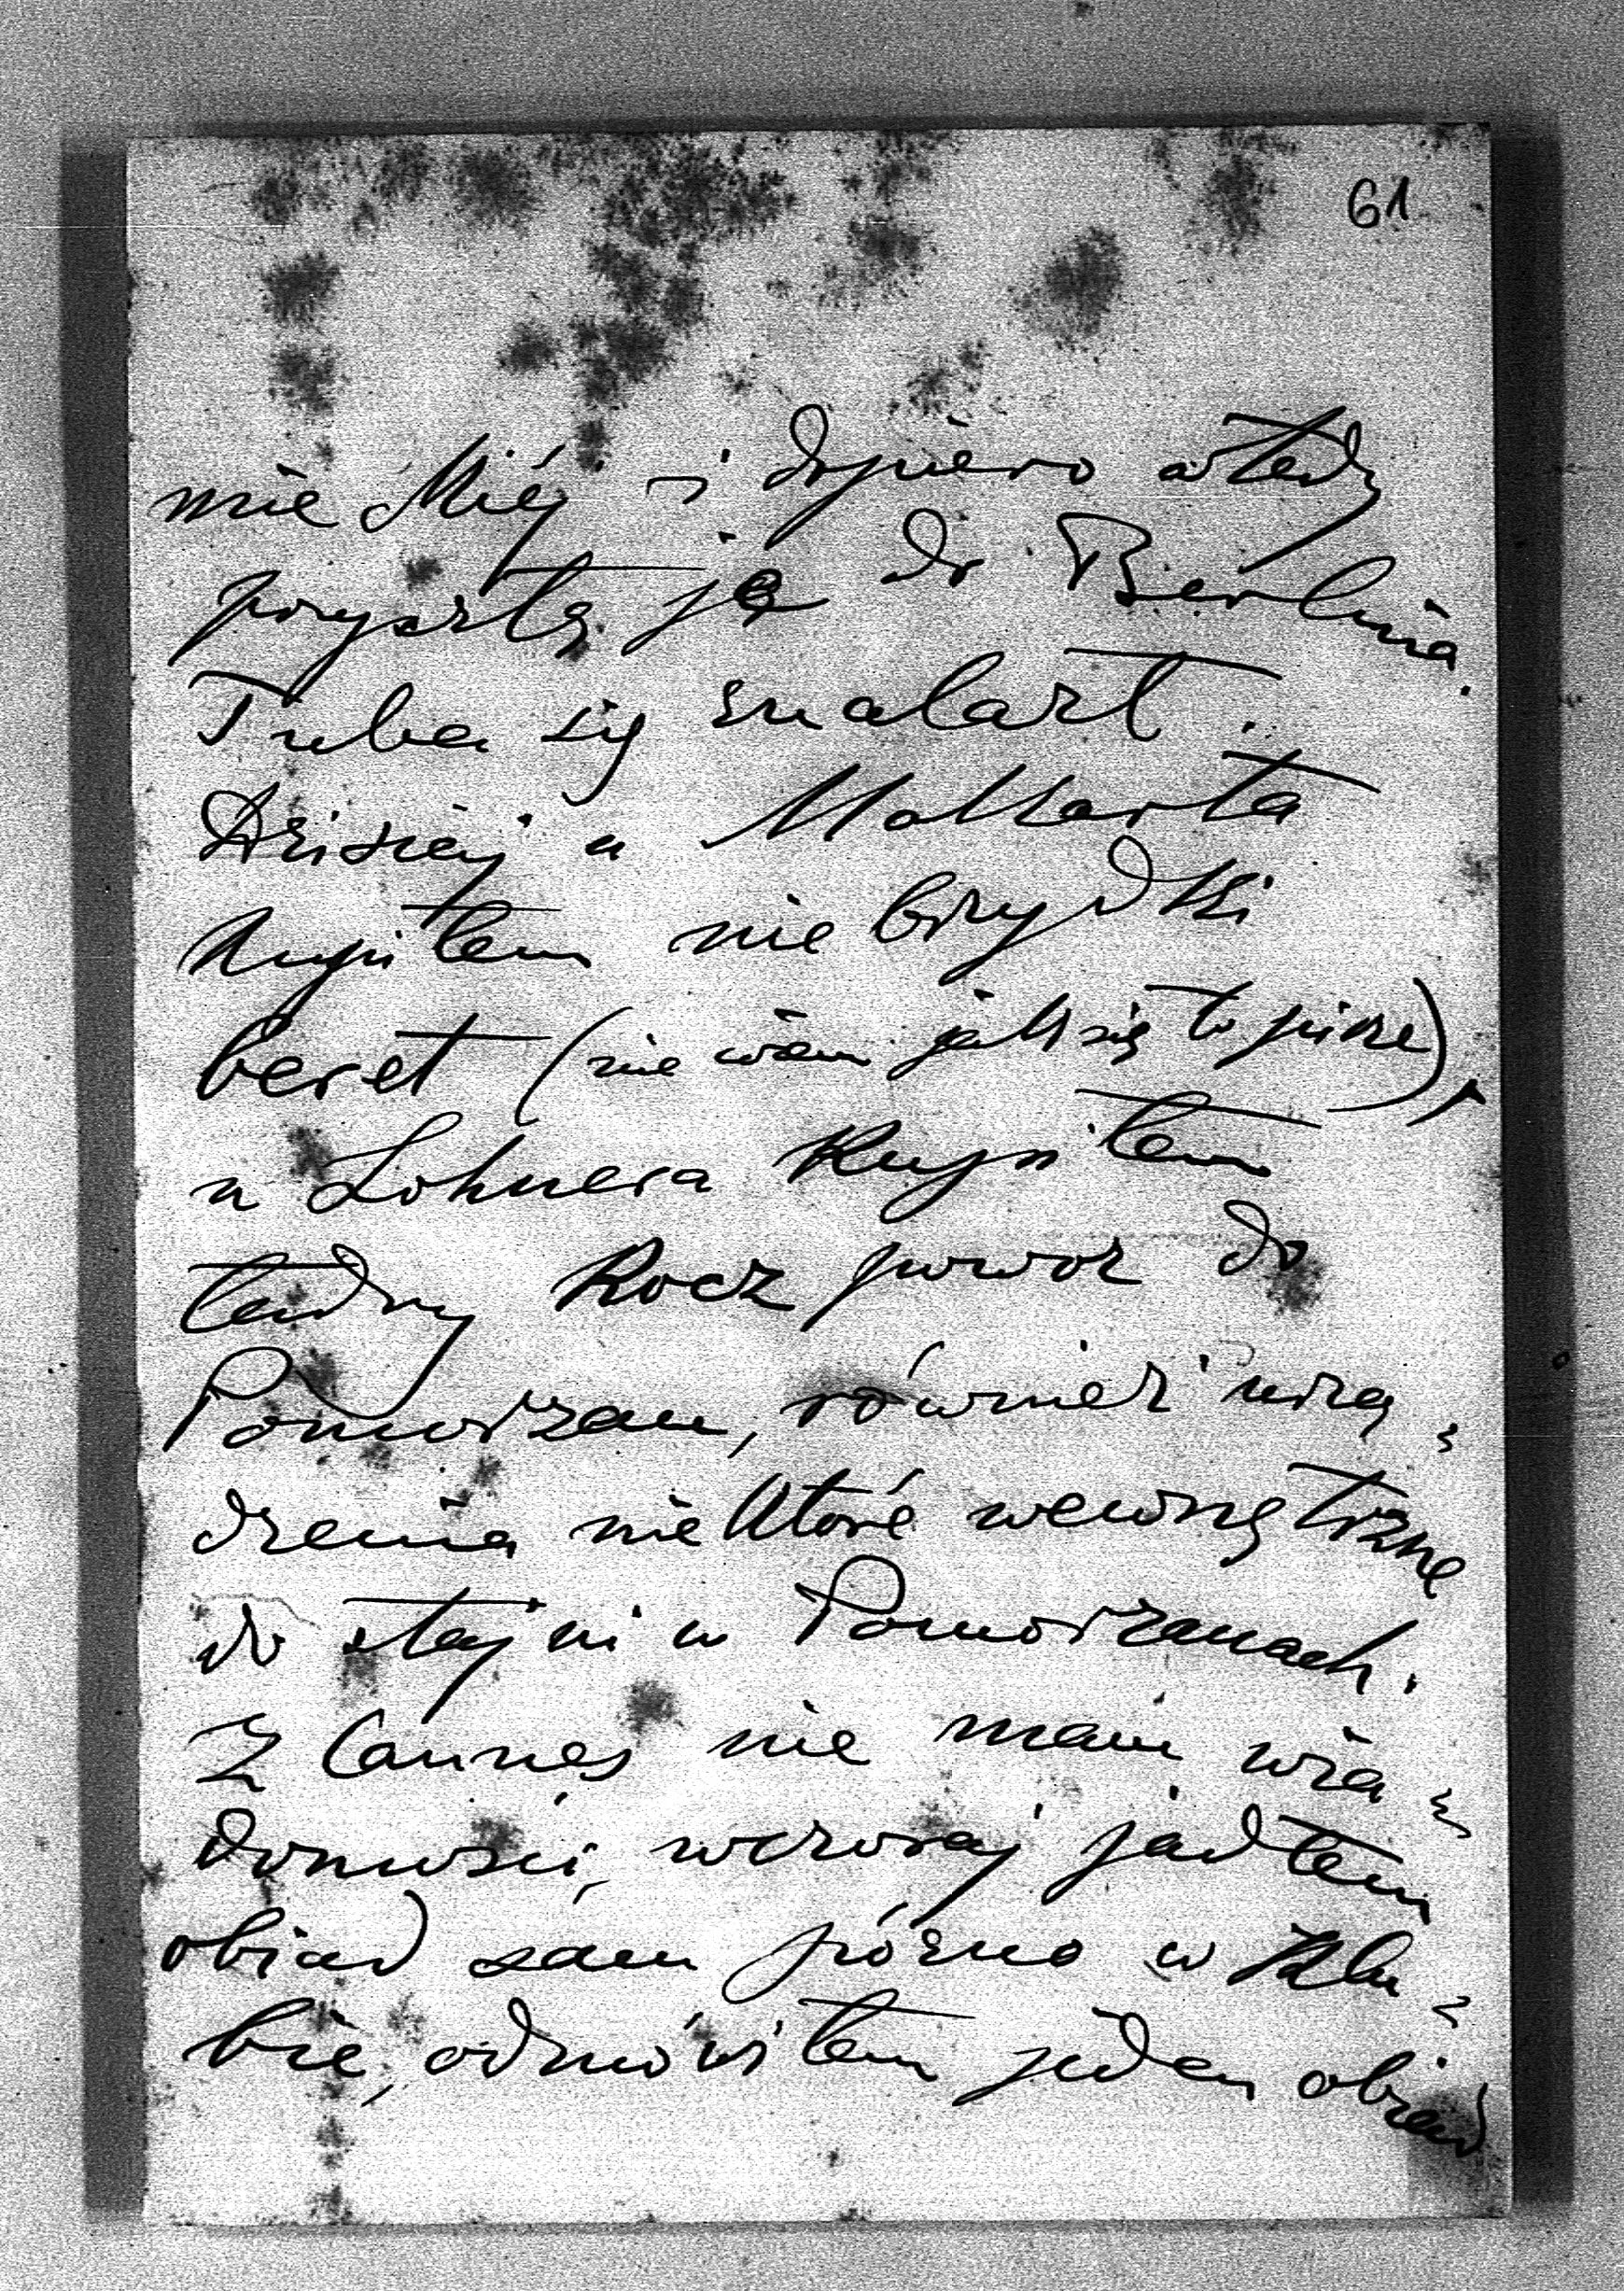 61
mie Miéj i dopiero wtedy
przyszlą ją do Berlina.
Tuba się znalazł.
Dzisiaj u Makarta
kupiłem nie brzydki
beret (nie wiem jak się to pisze),
u Lohnera kupiłem
ładny Kocz powoz do
Pomorzan, również urzą=
dzenia niektóre wewnętrzne
do stajni w Pomorzanach.
Z Cannes nie mam wia=
domości, wczoraj jadłem
obiad sam późno w Klu=
bie, odmówiłem jeden obiad